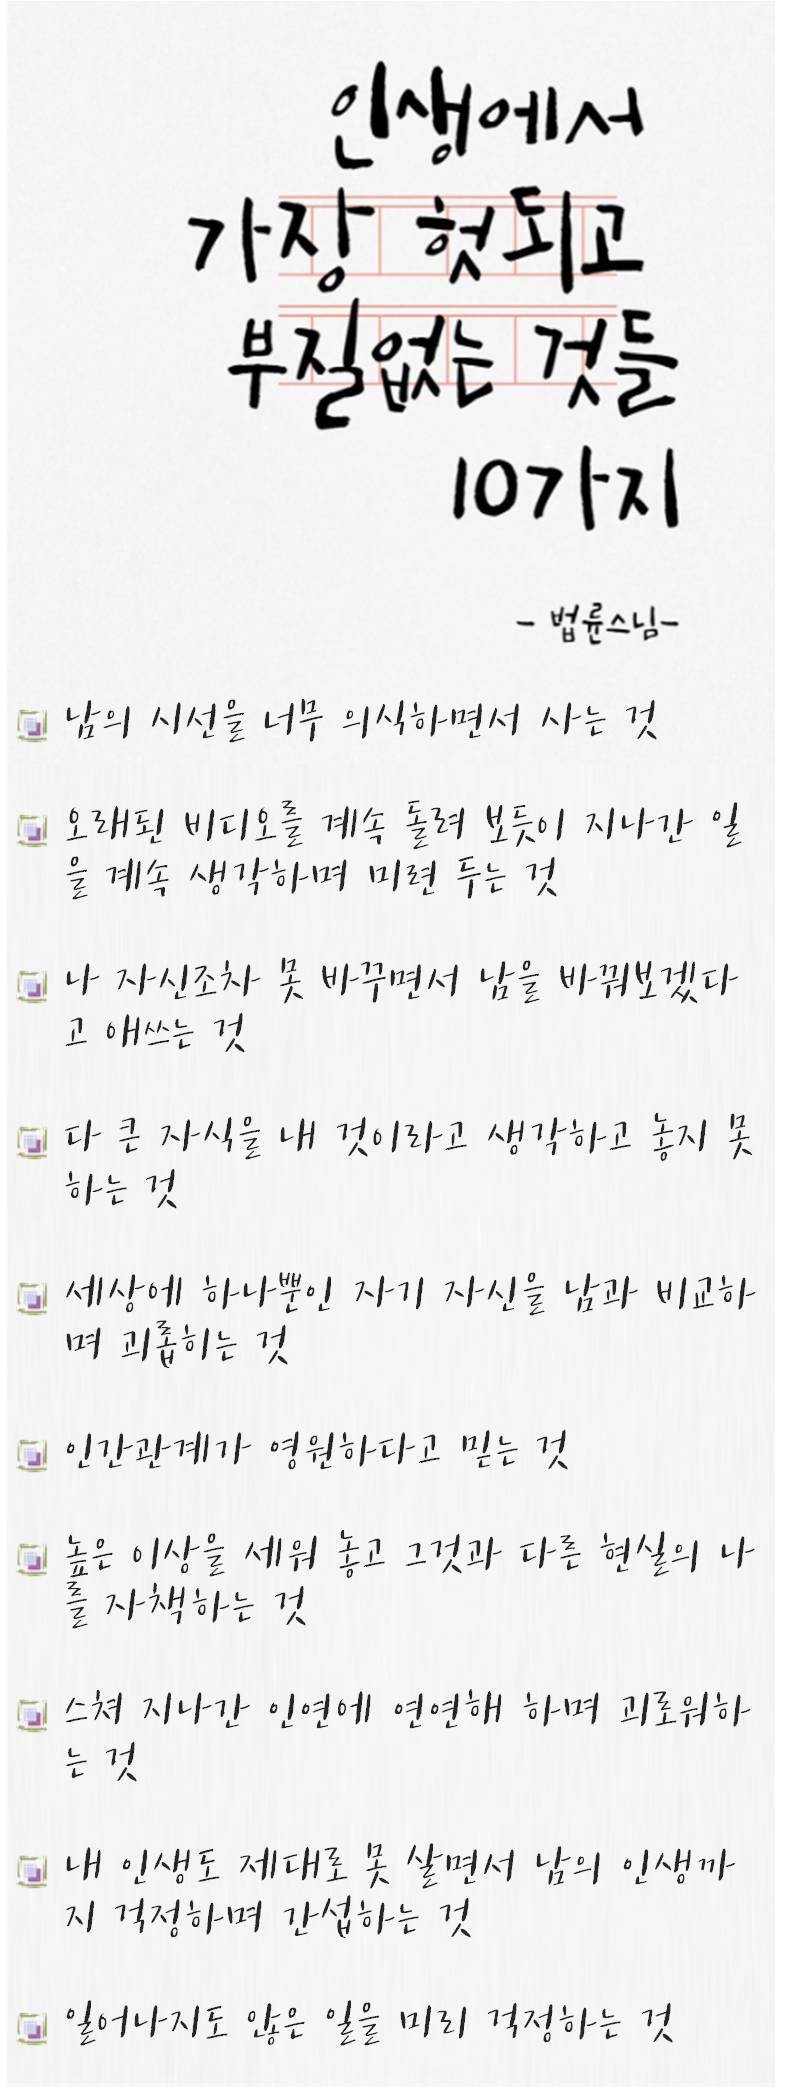 인생에서
가장 헛되고
부질없는 것들
10가지
- 법륜스님-
남의 시선을 너무 의식하면서 사는 것
오래된 비디오를 계속 돌려 보듯이 지나간 일
을 계속 생각하며 미련 두는 것
나 자신조차 못 바꾸면서 남을 바꿔보겠다
고 애쓰는 것
다 큰 자식을 내 것이라고 생각하고 놓지 못
하는 것
세상에 하나뿐인 자기 자신을 남과 비교하
며 괴롭히는 것
인간관계가 영원하다고 믿는 것
높은 이상을 세워 놓고 그것과 다른 현실의 나
를 자책하는 것
스쳐 지나간 인연에 연연해 하며 괴로워하
는 것
내 인생도 제대로 못 살면서 남의 인생까
지 걱정하며 간섭하는 것
일어나지도 않은 일을 미리 걱정하는 것